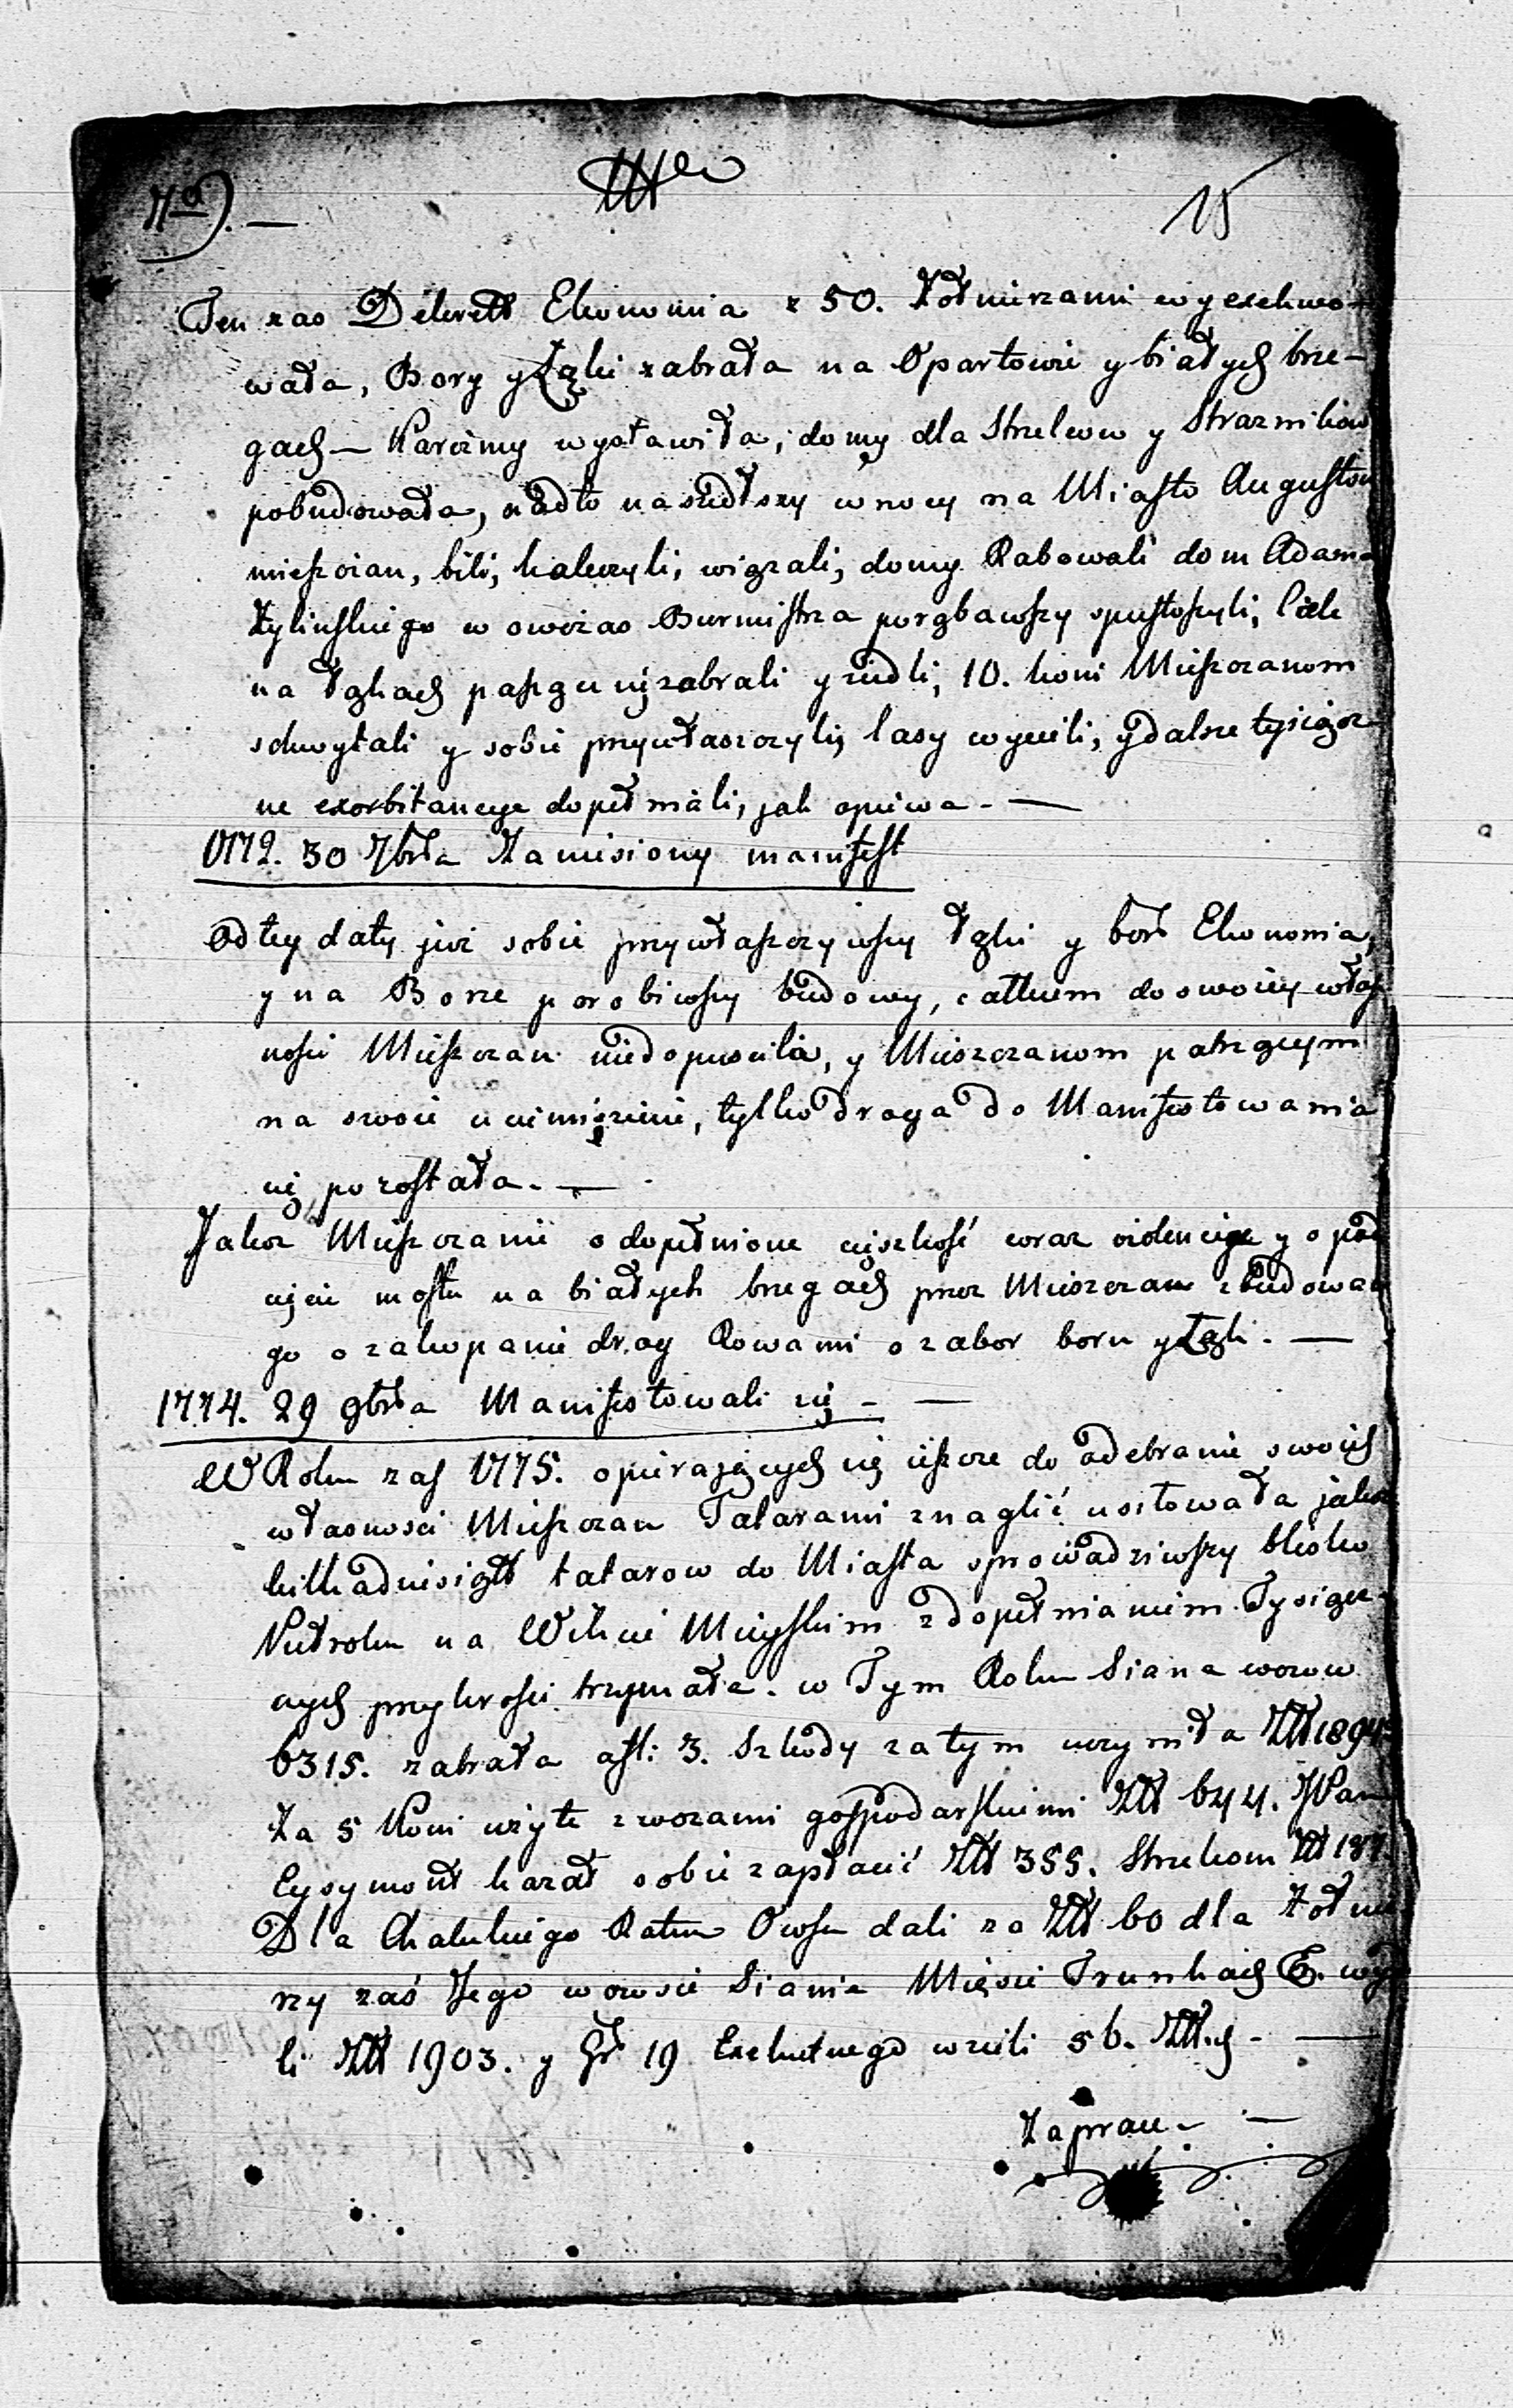 7mo). —
15
Ten zas Dekrett Ekonomia z 50. Żołnierzami wyexekwo-
wała, Bory y Łąki zabrała na Opartowie y białych brze-
gach — Karczmy wystawiła, domy dla Strzelcow y Straznikow
pobudowała, nadto naszedłszy w nocy na Miasto Augustow
mieszczan, bili, kaleczyli, więzali, domy Rabowali dom Adama
Żylinskiego w owczas Burmistrza porąbawszy spustoszyli,
na Łąkach pasące się zabrali y ziedli, 10. koni Mieszczanom
schwytali y sobie przywłaszczyli, lasy wycieli, y dalsze tysiącz-
ne exorbitancye dopełniali, jak opiewa. —
1772. 30 7bra Zaniesiony manifest
Od tey daty już sobie przywłaszczywszy Łąki y bor Ekonomia,
y na Borze porobiwszy budowy, całkiem do swoiey włas-
nosci Mieszczan niedopuscila, y Mieszczanom patrzącym
na swoie uciemięzenie, tylko droga do Manifestowania
się pozostała. —
Jakoż Mieszczanie o dopełnione ciężkość coraz violencye y o pod-
cięcie mostu na białych brzegach przez Mieszczan zbudowane-
go o zakopanie drog Rowami o zabor boru y Łąk. —
1774. 29 9bra Manifestowali się — —
W Roku zas 1775. opierających się ieszcze do odebranie swoich
własnosci Mieszczan Tatarami znaglić usiłowała jakoż
kilkadziesiąt tatarow do Miasta sprowadziwszy blisko
Pułroku na Wikcie Mieyskim z dopełnianiem Tysiącz-
nych przykrosci trzymała. w Tym Roku Siana wozow
6315. zabrała ast: 3. Szkody zatym uczyniła Złł 1894
Za 5 Koni wzięte z wozami gospodarskiemi Złł 644. JPan
Eysymontt kazał sobie zapłacić Złł 355. Strzelcom Złł 187.
Dla Chaleckiego Ratm Owsu dali za Złł 60 dla Żołnie-
rzy zaś Jego w owsie Sianie Mięsie Trunkach
li Złł 1903. y Gr 19 Exekutnego wzieli 56. Złłch — —
Zaprau— —